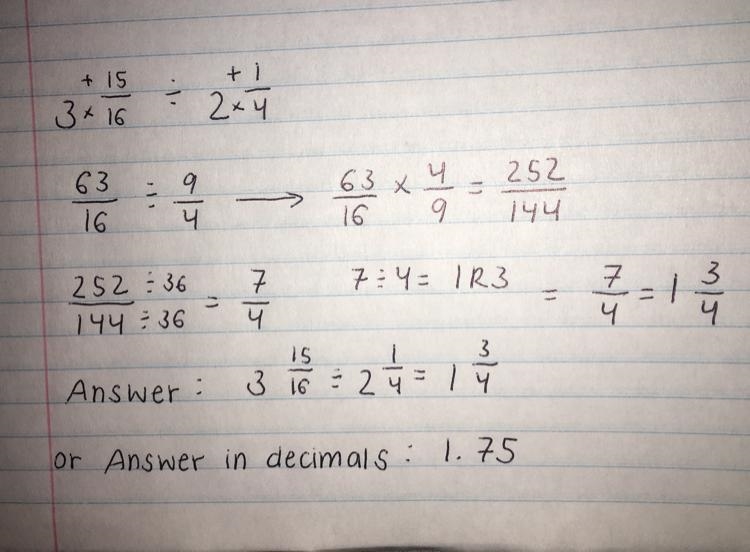 3 × + 15/16 ÷ 2 × + 1/4
63/16 ÷ 9/4 → 63/16 × 4/9 = 252/144
252 ÷ 36/144 ÷ 36 = 7/4 7 ÷ 4 = 1R3 = 7/4 = 1 3/4
Answer : 3 15/16 ÷ 2 1/4 = 1 3/4
or Answer in decimals : 1.75